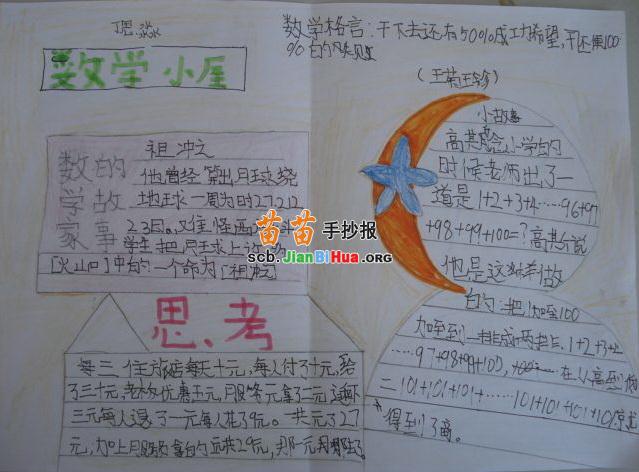 数学格言：干下去还有50%成功希望，不还便100
%的失败
数学小屋
数的
学故
家事
祖冲之
他曾经算出月球绕
地球一周为时27.212
23日，难怪
学生把月球上许多
[火山口]中的一个命为[祖冲之]
小故事
高其念小学的
时候老师出了一
道是1+2+3+4……96+97
+98+99+100=？高其
他是这样做
的：把1加至100
加至到一排成两排：1+2+3+4
……97+98+99+100，
=101+101+101+……101+101+101+101
得到了商。
思、考
每三住旅店每天十元，每人付了十元，给
了三十元，老板优惠五元，服务元拿了二元退
三元每人退了一元每人花了9元。一共元了27
元，加上服务员拿的2元共29元，那一元
苗苗手抄报
scb.JianBiHua.org